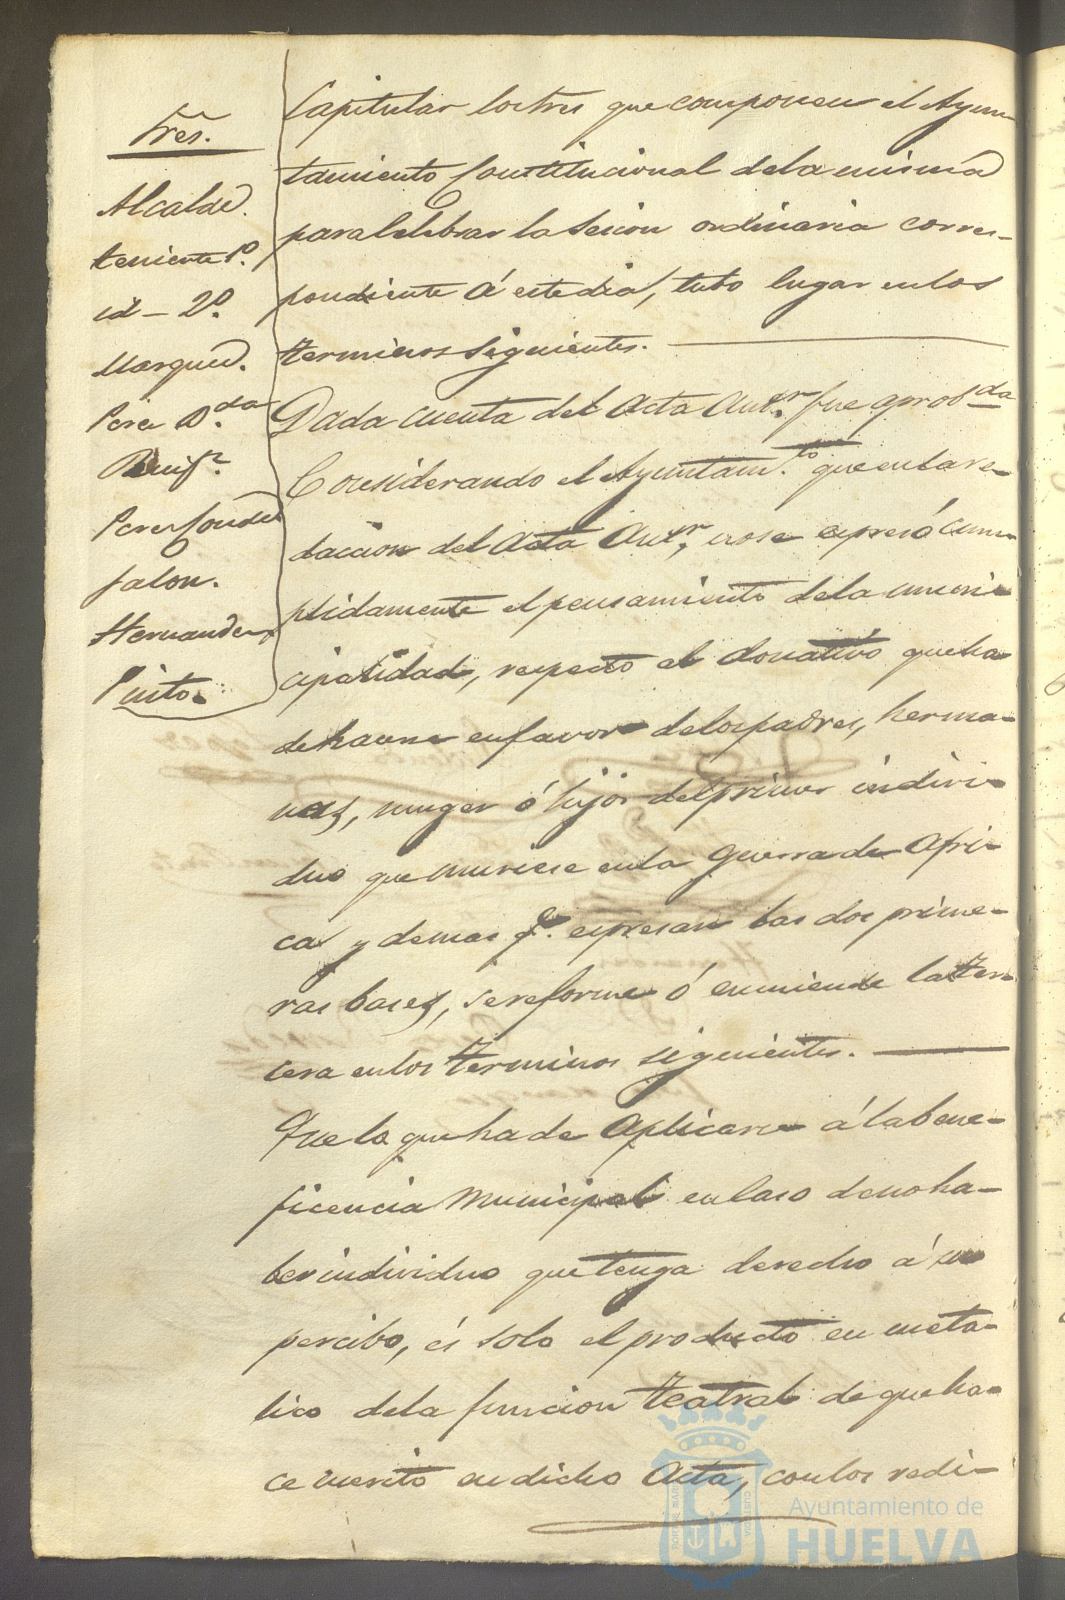 Sres.
Alcalde.
teniente 1º.
id - 2º.
Marquez.
Perez D.da
Perez
Jalon.
Hernandez
Pinto.
Capitular los Sres que componen el Ayun-
tamiento Constitucional de la misma
para celebrar la Sesion ordinaria corres-
pondiente á este dia, tubo lugar en los
terminos siguientes.
Dada cuenta del Acta Antr. fue aprobda
Considerando el Ayuntamto. que en la re-
daccion del Acta Antr. no se espresó cum-
plidamente el pensamiento de la muni-
cipalidad, respecto el donativo que ha
de hacerse en favor de los padres, herma-
nas, muger ó hijos del primer indivi-
duo que muriese en la Guerra de Afri-
ca y demas qe. espresan las dos prime-
ras bases, se reforme ó enmiende la ter-
cera en los terminos siguientes.
Que lo que ha de aplicarse á la bene-
ficencia Municipal en caso de no ha-
ber individuo que tenga derecho á su
percibo, és solo el producto en meta-
lico de la funcion teatral de que ha-
ce merito en dicho Acta, con los redi-
Ayuntamiento de
HUELVA